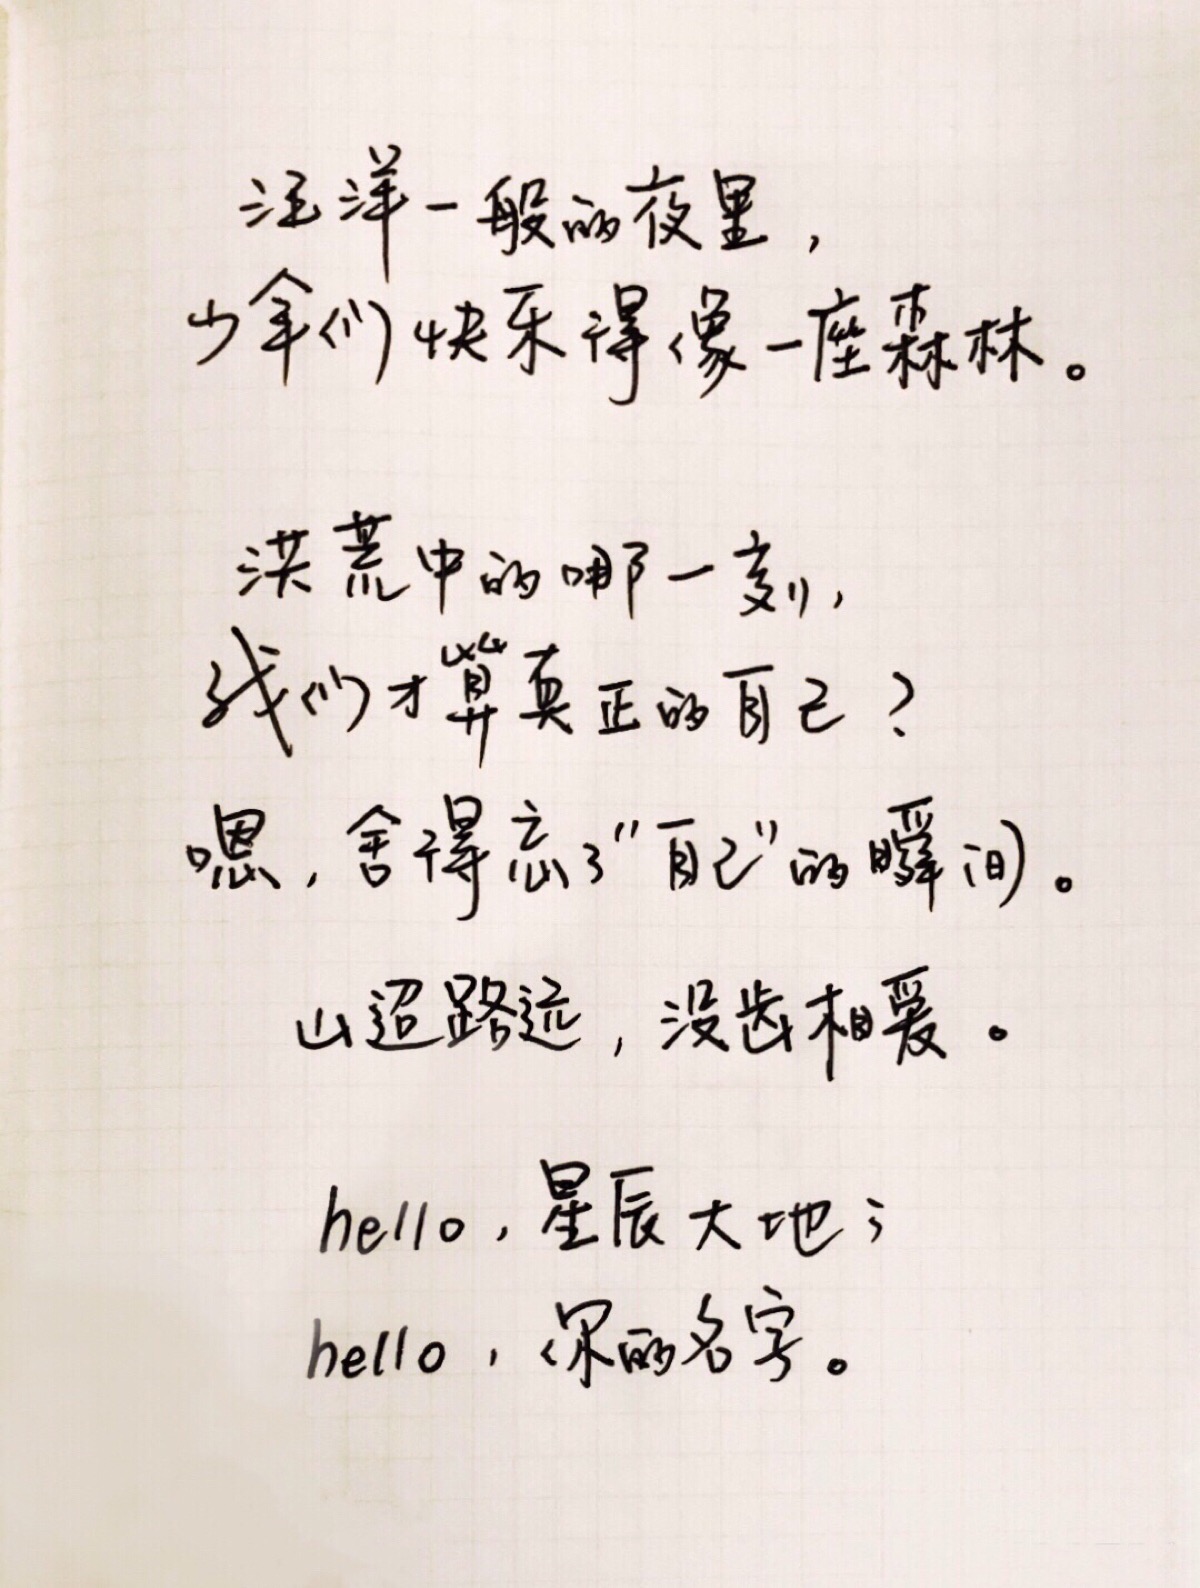 汪洋一般的夜里，
少年们快乐得像一座森林。
洪荒中的哪一刻，
我们才算真正的自己？
嗯，舍得忘了“自己”的瞬间。
山迢路远，没齿相爱。
hello，星辰大地；
hello，你的名字。